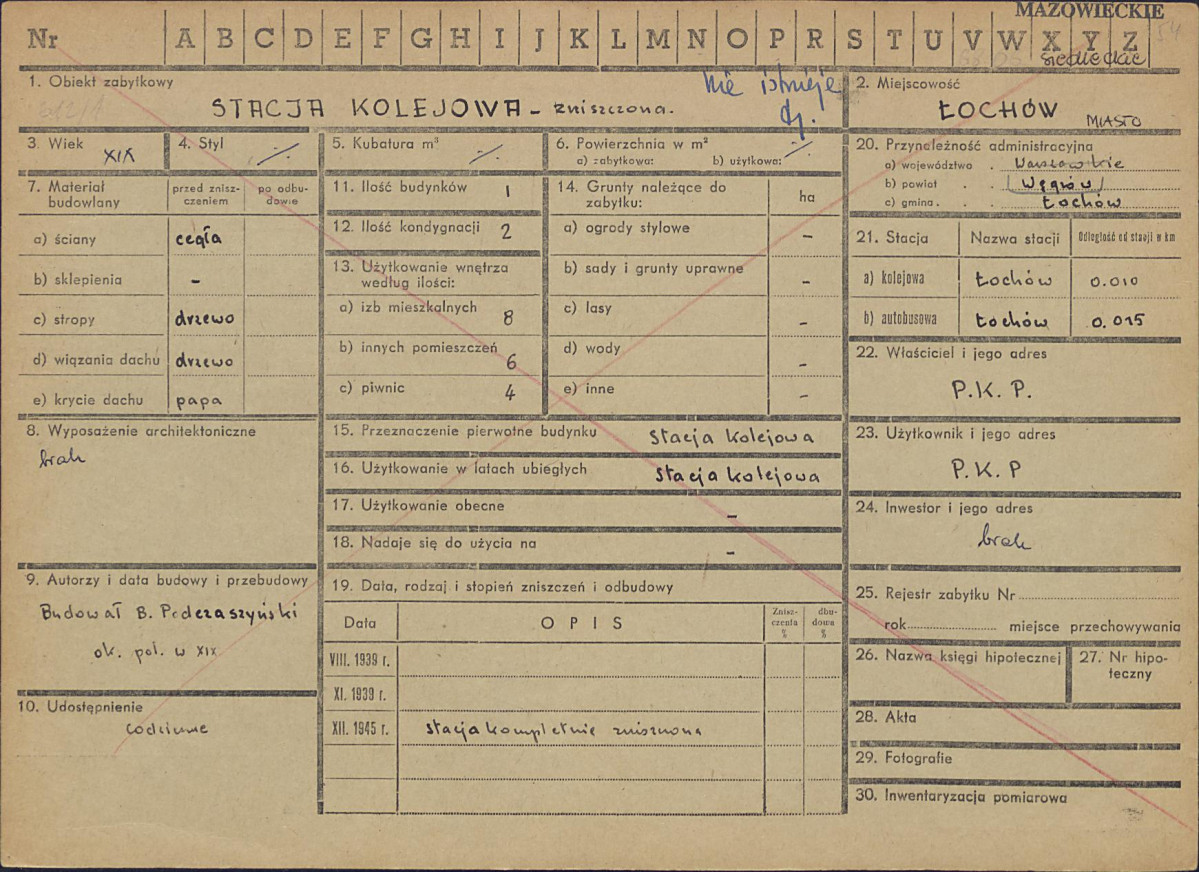 MAZOWIECKIE
Nr A B C D E F G H I J K L M N O P R S T U V W X Y Z
siedleckie
1. Obiekt zabytkowy
STACJA KOLEJOWA - zniszczona.
nie istnieje
2. Miejscowość
ŁOCHÓW MIASTO
3. Wiek XIX
4. Styl -/-
5. Kubatura m³ -/-
6. Powierzchnia w m² -/-
a) zabytkowa: b) użytkowa:
20. Przynależność administracyjna
a) województwo . Warszawskie
b) powiat . . (Węgrów)
c) gmina . . Łochów
7. Materiał budowlany
przed zniszczeniem
po odbudowie
a) ściany cegła
b) sklepienia -
c) stropy drzewo
d) wiązania dachu drzewo
e) krycie dachu papa
11. Ilość budynków 1
12. Ilość kondygnacji 2
13. Użytkowanie wnętrza
według ilości:
a) izb mieszkalnych 8
b) innych pomieszczeń 6
c) piwnic 4
14. Grunty należące do
zabytku: ha
a) ogrody stylowe -
b) sady i grunty uprawne -
c) lasy -
d) wody -
e) inne -
21. Stacja Nazwa stacji Odległość od stacji w km
a) kolejowa Łochów 0.010
b) autobusowa Łochów 0.015
22. Właściciel i jego adres
P.K.P.
8. Wyposażenie architektoniczne
brak
15. Przeznaczenie pierwotne budynku stacja kolejowa
16. Użytkowanie w latach ubiegłych stacja kolejowa
17. Użytkowanie obecne -
18. Nadaje się do użycia na -
23. Użytkownik i jego adres
P.K.P
24. Inwestor i jego adres
brak
9. Autorzy i data budowy i przebudowy
Budował B. Podczaszyński
ok. poł. w XIX
10. Udostępnienie
codzienne
19. Data, rodzaj i stopień zniszczeń i odbudowy
Data OPIS Zniszczenia % dbudowa %
VIII. 1939 r.
XI. 1939 r.
XII. 1945 r. stacja kompletnie zniszczona
25. Rejestr zabytku Nr
rok miejsce przechowywania
26. Nazwa księgi hipotecznej
27. Nr hipoteczny
28. Akta
29. Fotografie
30. Inwentaryzacja pomiarowa